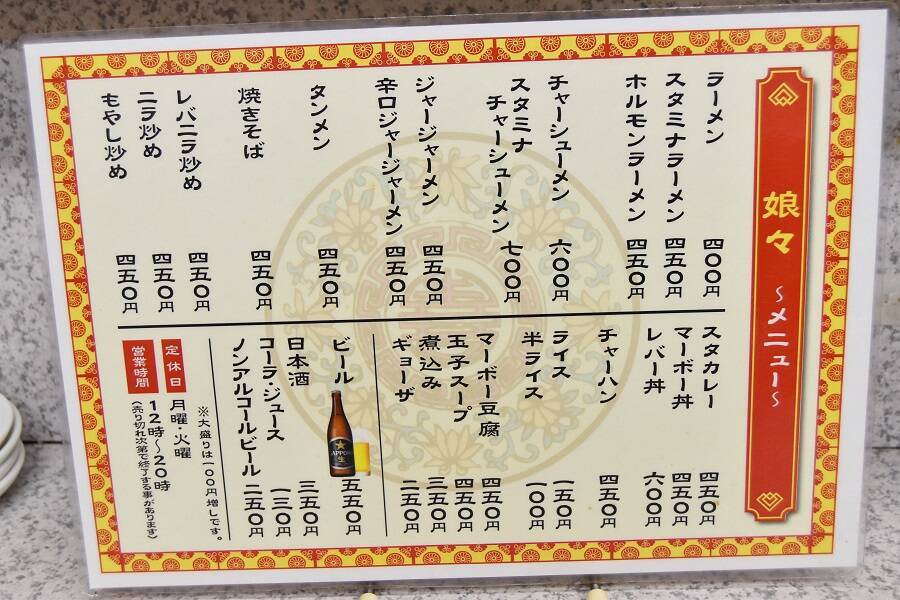 娘々 ～メニュー～
ラーメン 四〇〇円
スタミナラーメン 四五〇円
ホルモンラーメン 四五〇円
チャーシューメン 六〇〇円
スタミナ
チャーシューメン 七〇〇円
ジャージャーメン 四五〇円
辛口ジャージャーメン 四五〇円
タンメン 四五〇円
焼きそば 四五〇円
レバニラ炒め 四五〇円
ニラ炒め 四五〇円
もやし炒め 四五〇円
スタカレー 四五〇円
マーボー丼 四五〇円
レバー丼 六〇〇円
チャーハン 四五〇円
ライス 一五〇円
半ライス 一〇〇円
マーボー豆腐 四五〇円
玉子スープ 四五〇円
煮込み 三五〇円
ギョーザ 二五〇円
ビール 五五〇円
SAPPORO
生
日本酒 三五〇円
コーラ・ジュース 一三〇円
ノンアルコールビール 二五〇円
※大盛りは一〇〇円増しです。
定休日 月曜・火曜
営業時間 12時～20時
（売り切れ次第で終了する事があります）